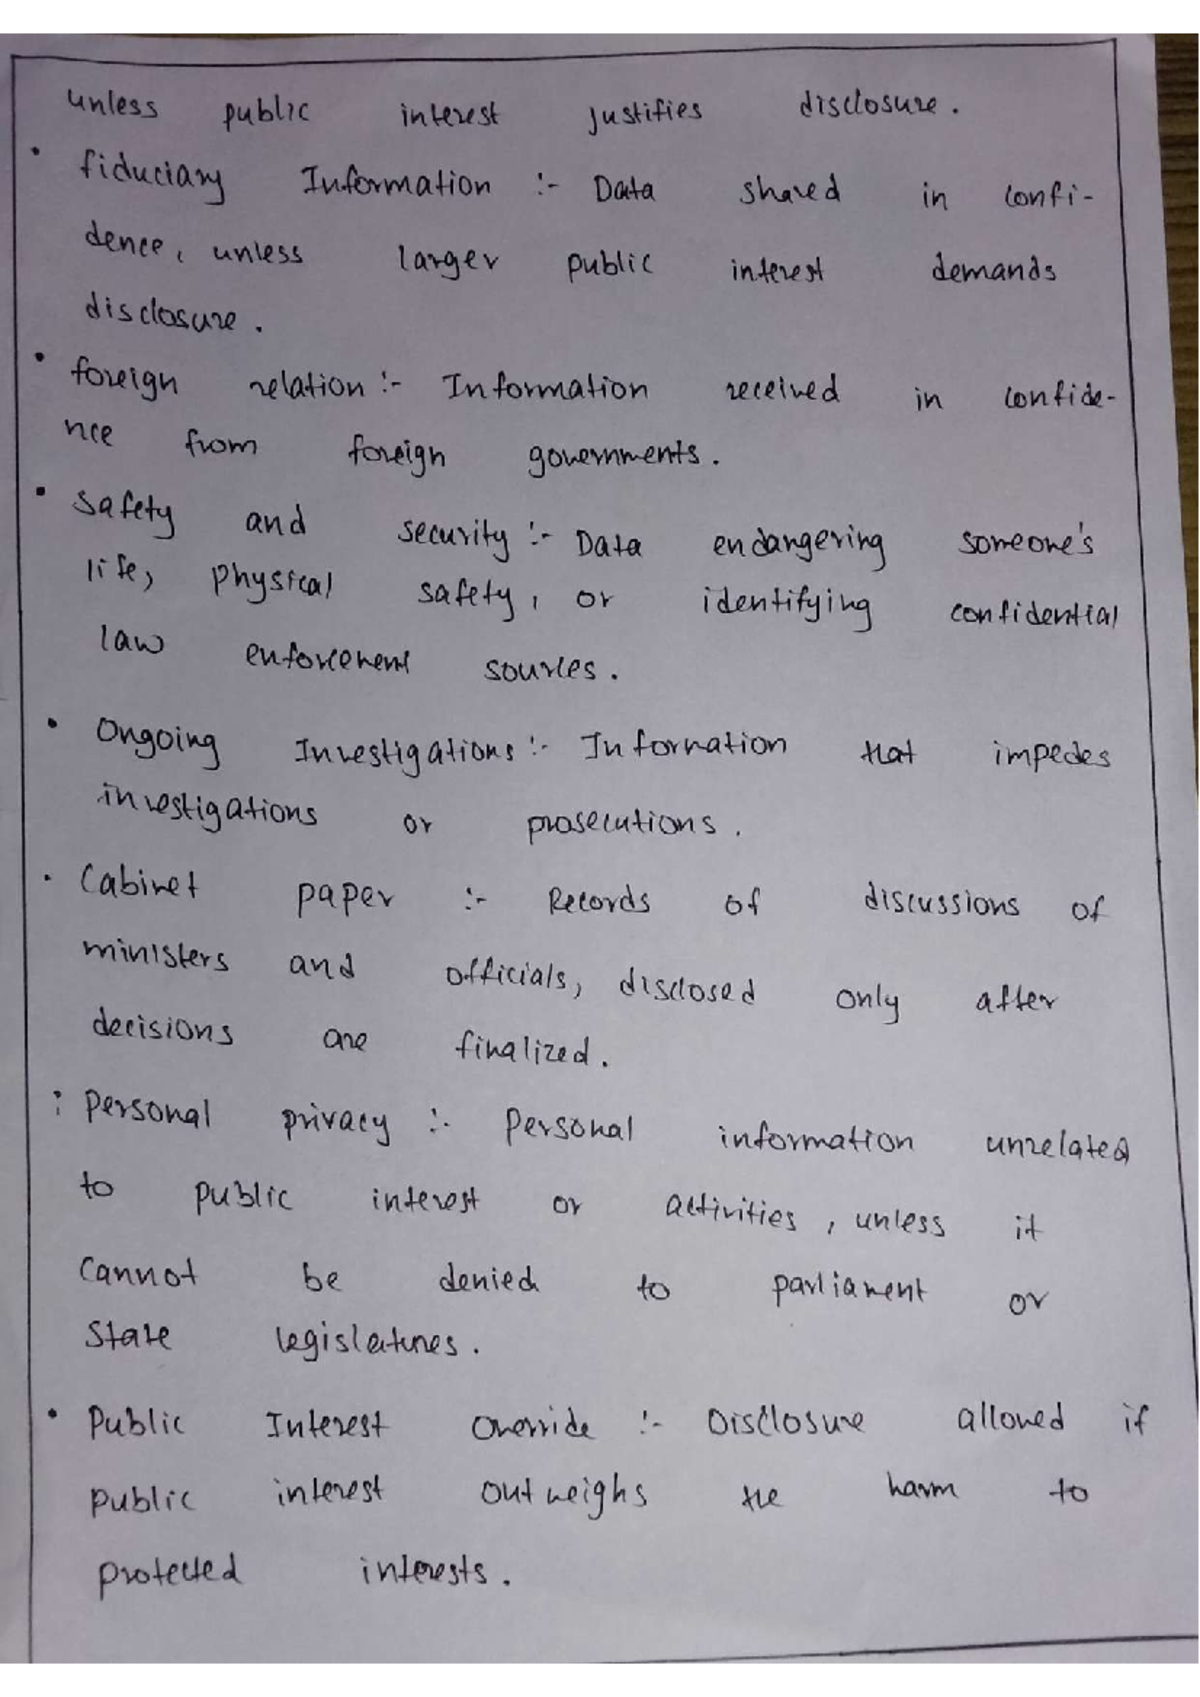 unless public interest justifies disclosure.
• fiduciary Information :- Data shared in confi-
dence, unless larger public interest demands
disclosure.
• foreign relation :- Information received in confide-
nce from foreign governments.
• Safety and security :- Data endangering someone's
life, physical safety, or identifying confidential
law enforcement sources.
• Ongoing Investigations :- Information that impedes
investigations or prosecutions.
• Cabinet paper :- Records of discussions of
ministers and officials, disclosed only after
decisions are finalized.
• Personal privacy :- Personal information unrelated
to public interest or activities, unless it
cannot be denied to parliament or
State legislatures.
• Public Interest Override :- Disclosure allowed if
public interest outweighs the harm to
protected interests.